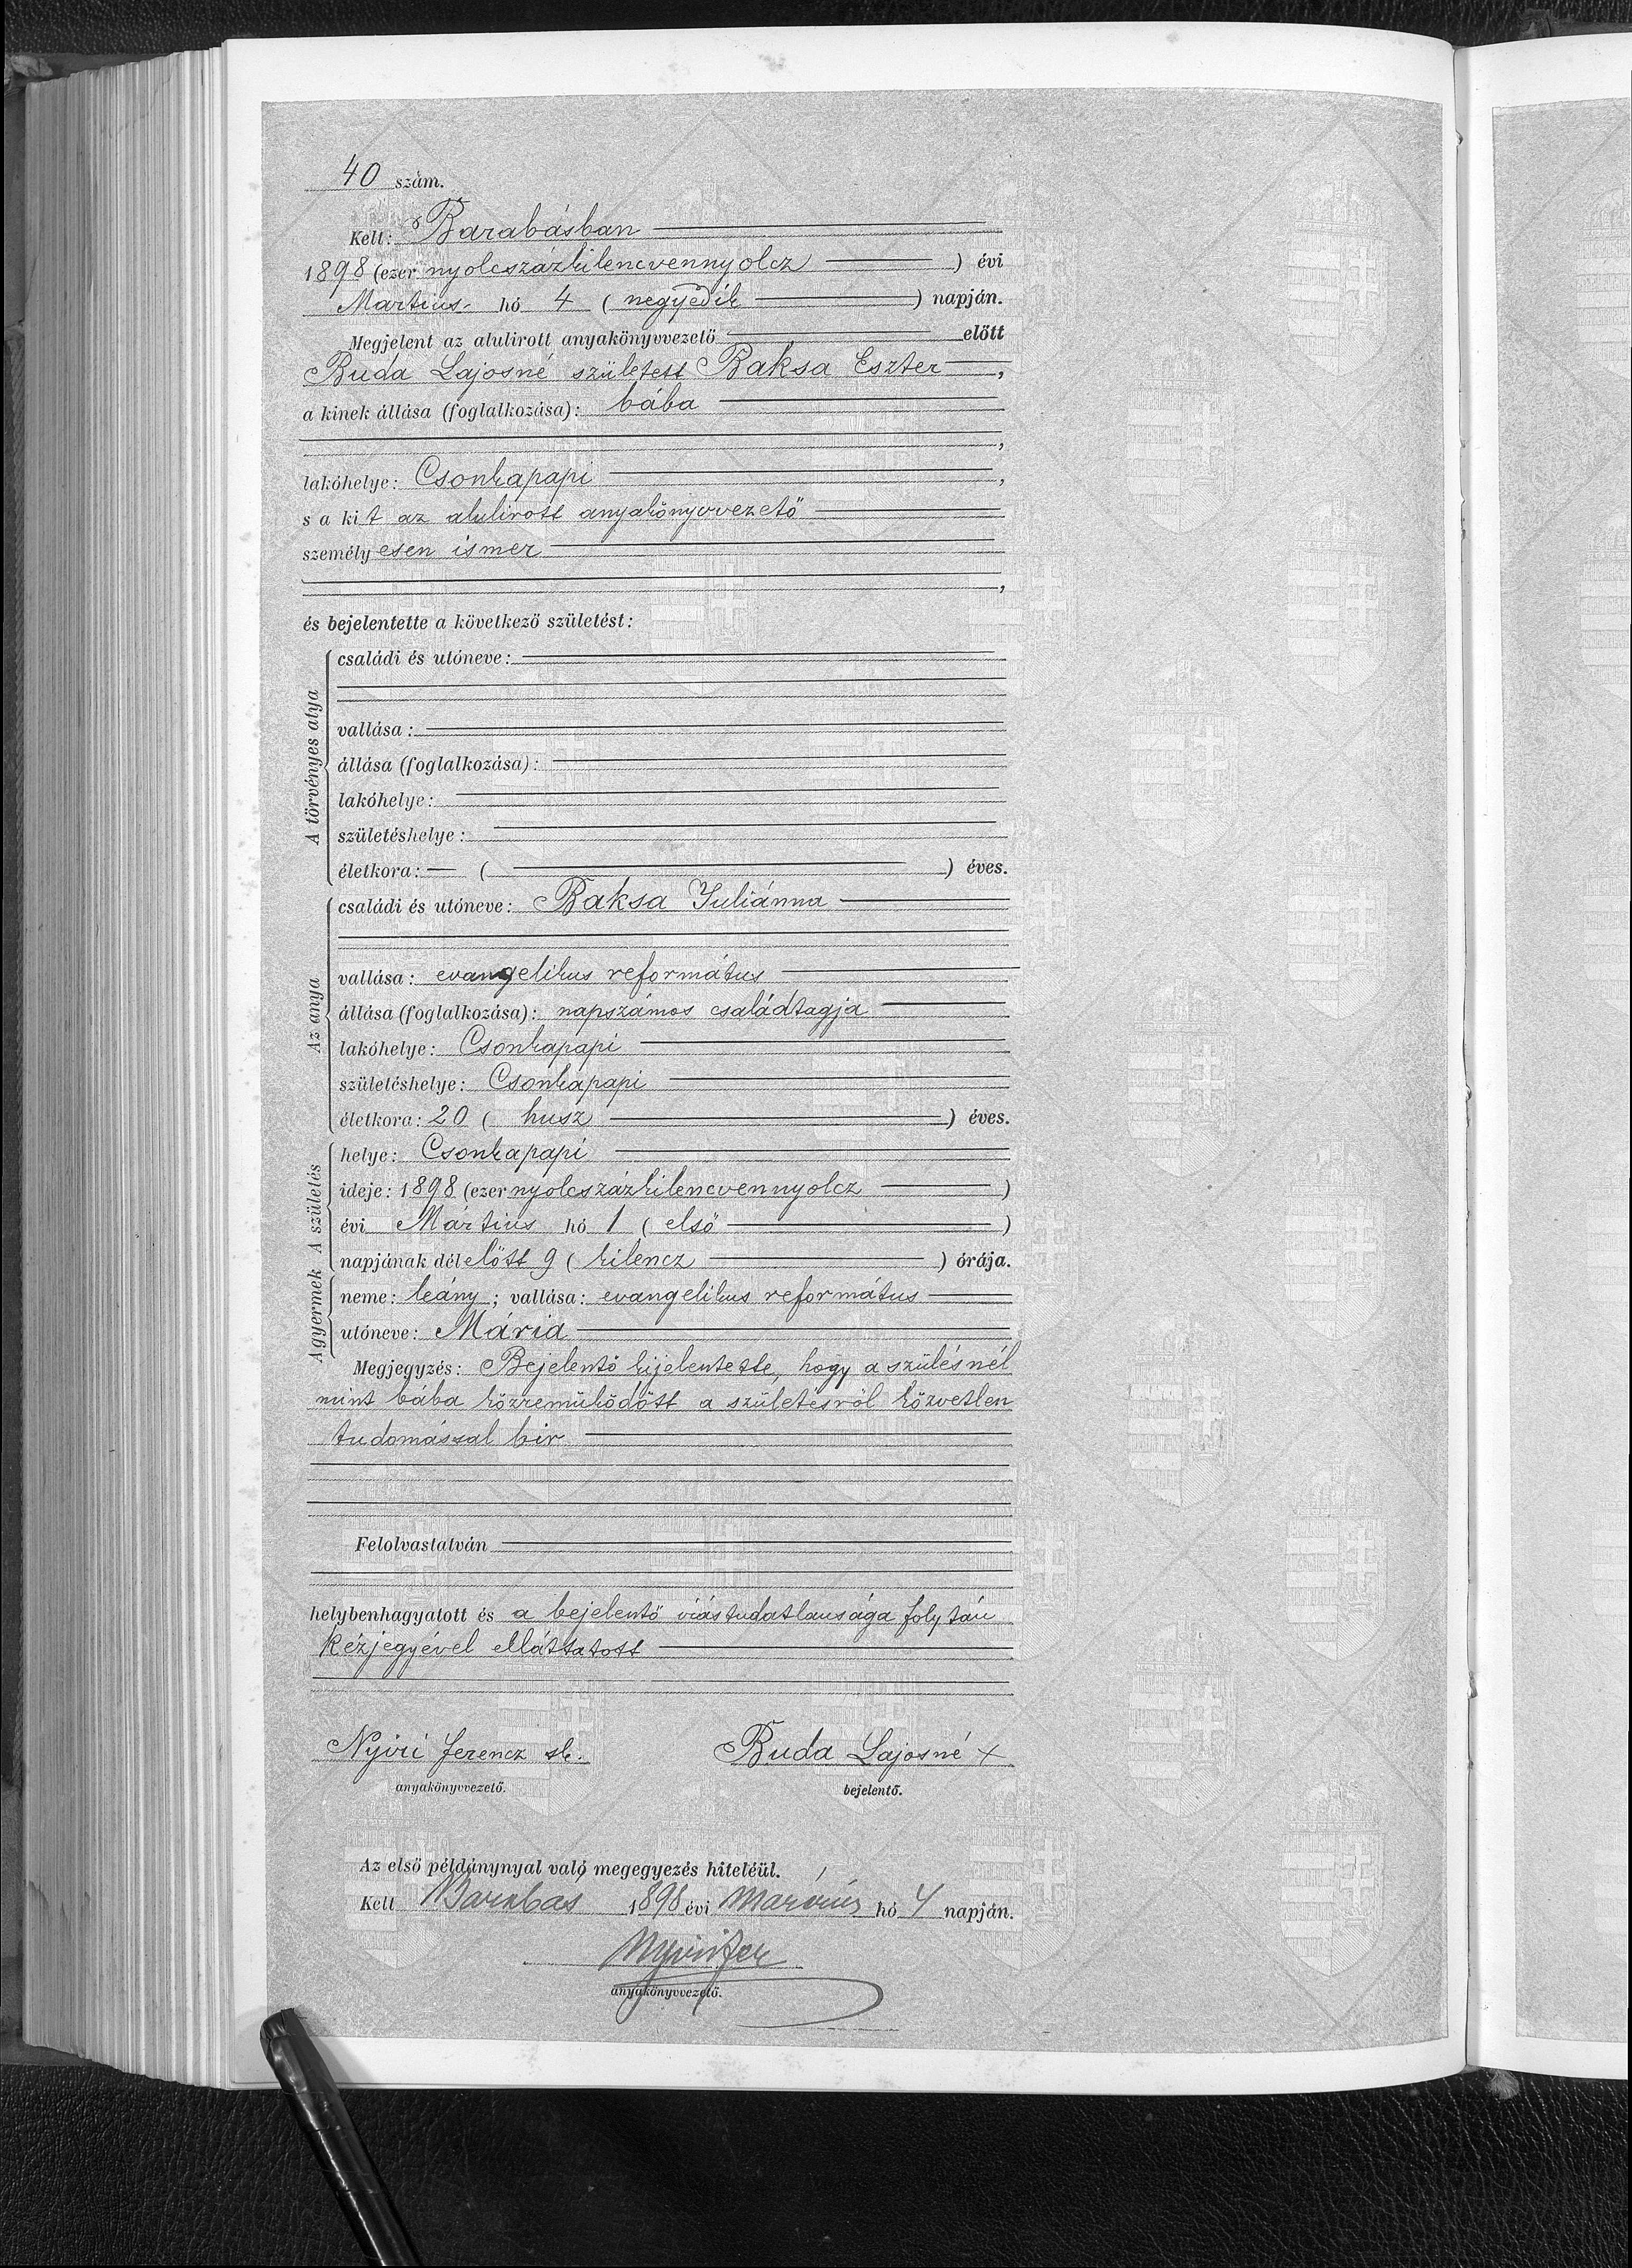 40 szám.
Kelt: Barabásban
1898 (ezer nyolcszázkilencvennyolcz) évi
Martius hó 4 (negyedik) napján.
Megjelent az alulirott anyakönyvvezető előtt
Buda Lajosné született Baksa Eszter,
a kinek állása (foglalkozása): bába
,
lakóhelye: Csonkapapi,
s a kit az alulirott anyakönyvvezető
személyesen ismer
,
és bejelentette a következő születést:
A törvényes atya
családi és utóneve:
vallása:
állása (foglalkozása):
lakóhelye:
születéshelye:
életkora: — ( ) éves.
Az anya
családi és utóneve: Baksa Juliánna
vallása: evangelikus református
állása (foglalkozása): napszámos családtagja
lakóhelye: Csonkapapi
születéshelye: Csonkapapi
életkora: 20 (husz) éves.
A születés
helye: Csonkapapi
ideje: 1898 (ezer nyolcszázkilencvennyolcz)
évi Mártius hó 1 (első)
napjának délelőtt 9 (kilencz) órája.
A gyermek
neme: leány; vallása: evangelikus református
utóneve: Mária
Megjegyzés: Bejelentő kijelentette, hogy a szülésnél
mint bába közreműködött a születésről közvetlen
tudomással bir
Felolvastatván
helybenhagyatott és a bejelentő irástudatlansága folytán
kézjegyével elláttatott
Nyiri Ferencz sk. Buda Lajosné X
anyakönyvvezető. bejelentő.
Az első példánynyal való megegyezés hiteléül.
Kelt Barabás 1898 évi Marcius hó 4 napján.
Nyiri Fer
anyakönyvvezető.